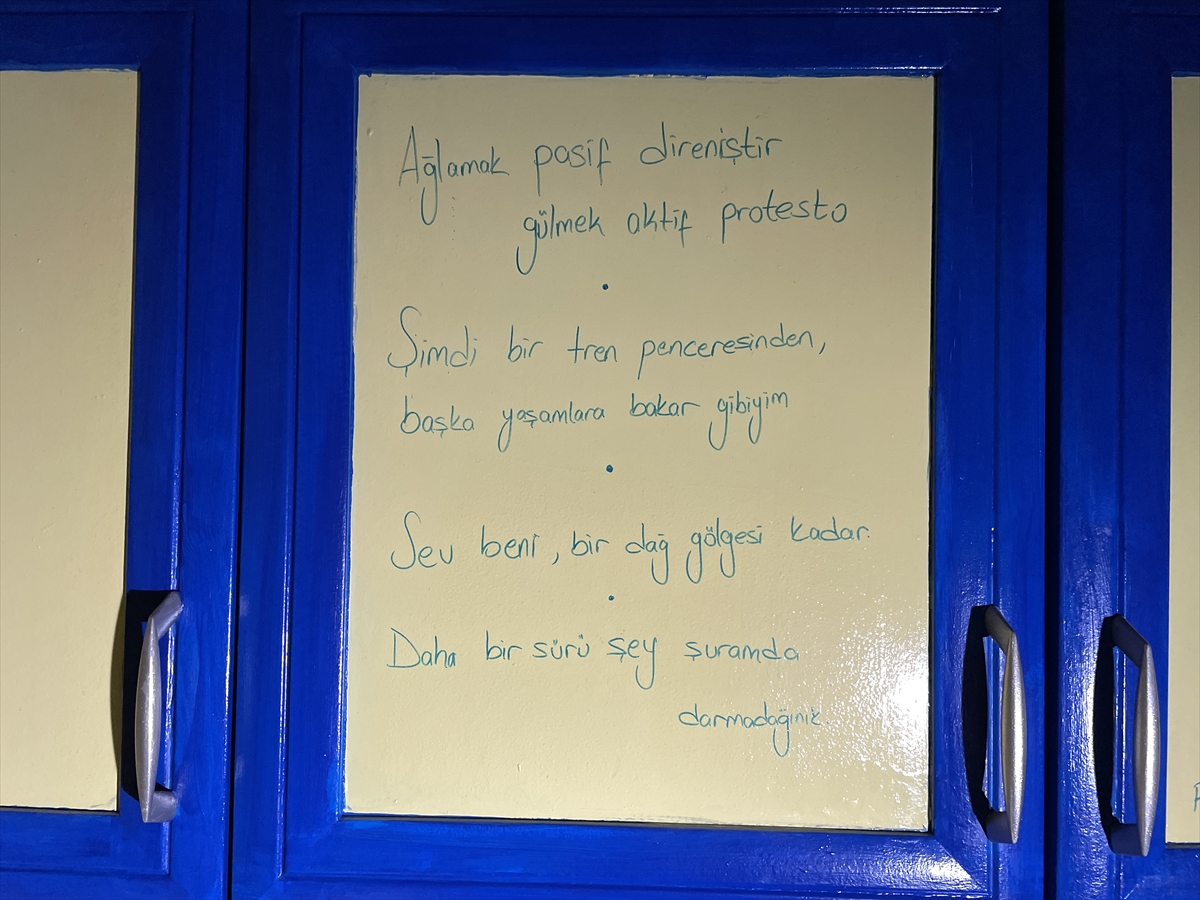 Ağlamak pasif direniştir
gülmek aktif protesto
•
Şimdi bir tren penceresinden,
başka yaşamlara bakar gibiyim
•
Sev beni, bir dağ gölgesi kadar.
•
Daha bir sürü şey şuramda
darmadağınık.